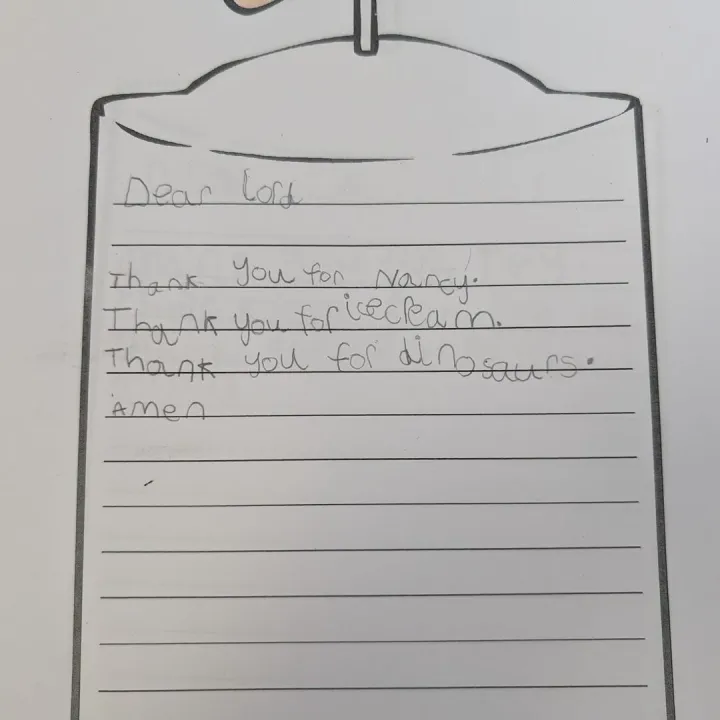 Dear Lord
Thank you for Nancy.
Thank you for icecream.
Thank you for dinosaurs.
Amen